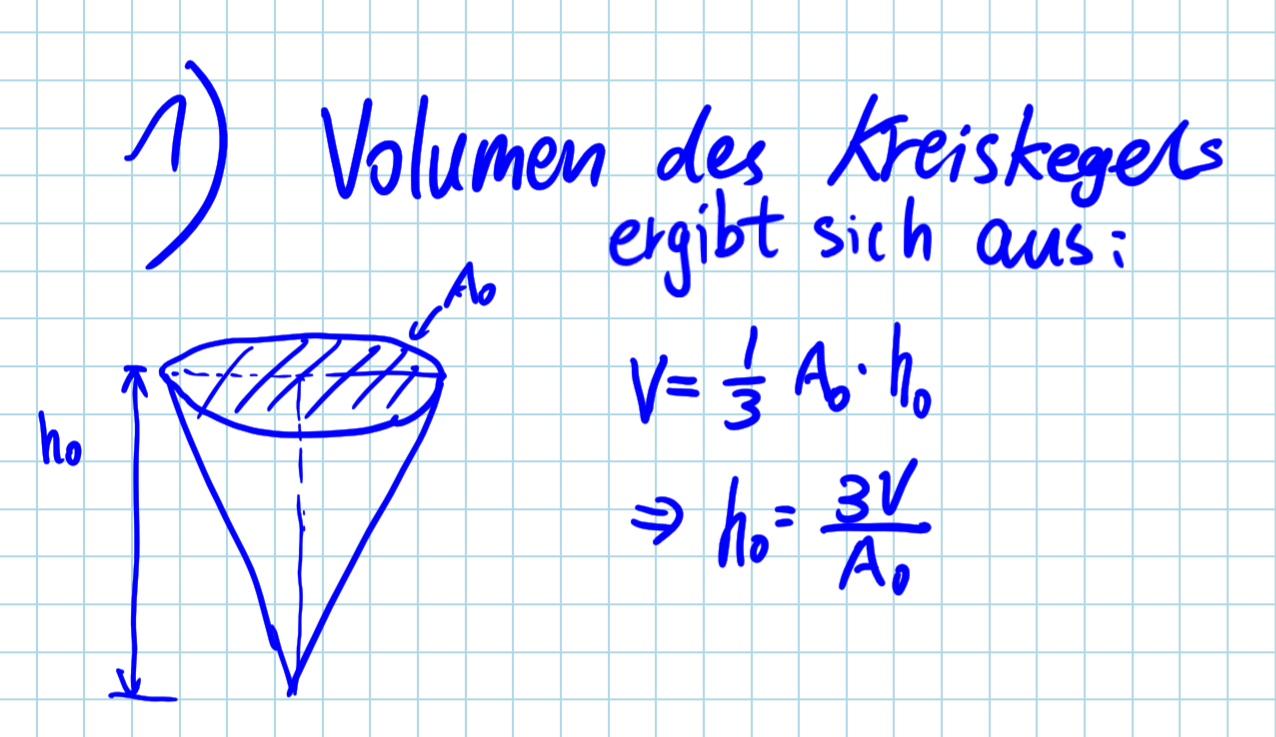 1) Volumen des Kreiskegels
ergibt sich aus:
A₀
h₀
V = 1/3 A₀ · h₀
⇒ h₀ = 3V/A₀